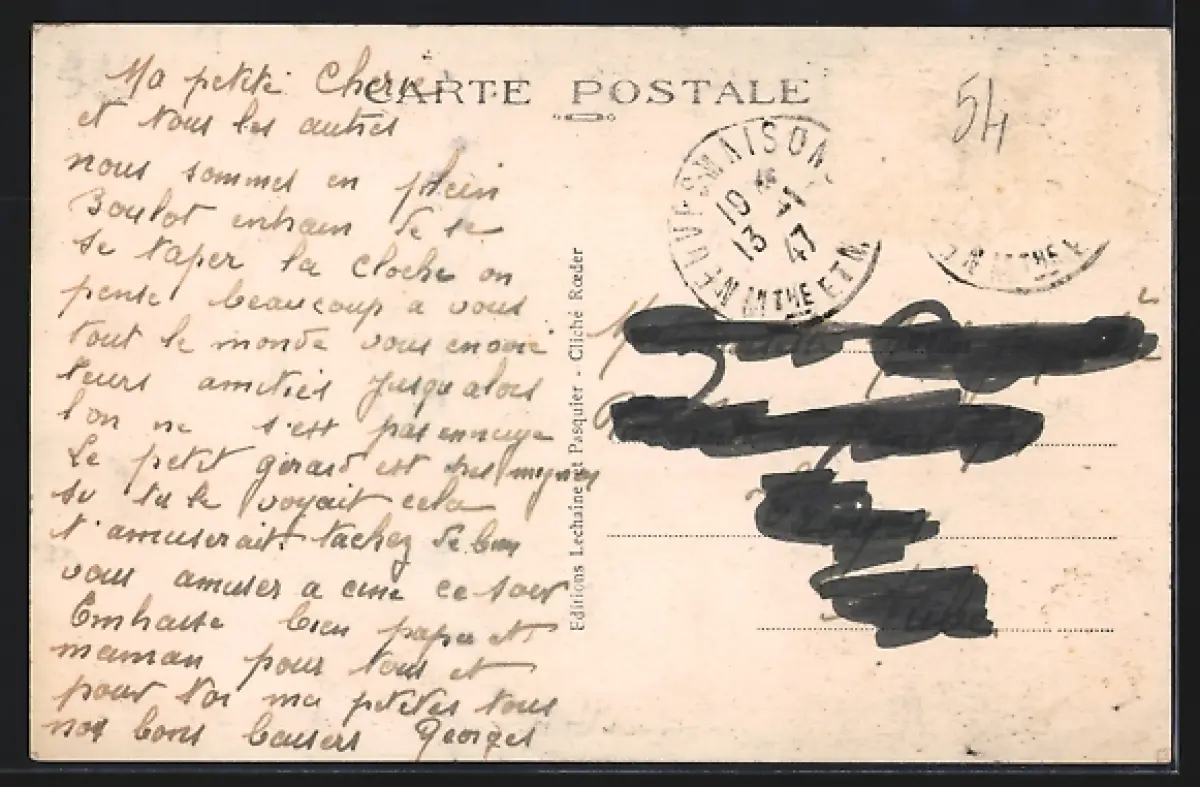 CARTE POSTALE
54
Ma petite Cherie
et tous les autres
nous sommes en plein
Boulot entrain de se
se taper la cloche on
pense beaucoup a vous
tout le monde vous envoie
leurs amities jusqu alors
l'on ne s'est pas ennuye
Le petit gerard est tres mignon
se tu le voyait cela
t'amuserait. tachez de bien
vous amuser a cine ce soir
Embrasse bien papa et
maman pour tous et
pour toi ma petites tous
nos bons baisers Georges
Editions Lechaine et Pasquier - Cliché Rœder
NEUVES-MAISON
19 H
13 -1
47
MTHE ET M.
MTHE